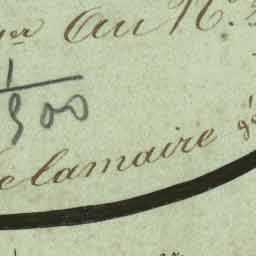 au N.
1
900
elamaire gé